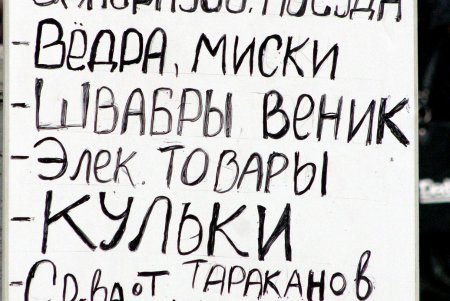 - ВЁДРА, МИСКИ
- ШВАБРЫ ВЕНИК
- Элек. ТОВАРЫ
- КУЛЬКИ
- Ср.ва от ТАРАКАНОВ